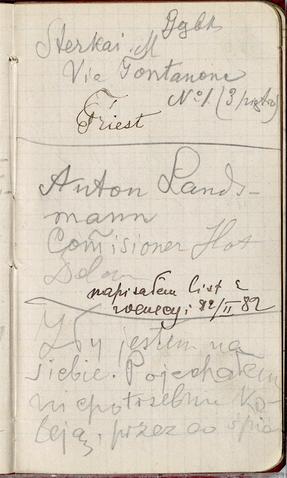 Sterkai M
Via Fontanone
No 1 (3 piętro)
Triest
Anton Lands-
mann
Comisioner Hot
napisałem list z
Wenecyi 22/II 82
Zły jestem na
siebie. Pojechałem
niepotrzebnie ko-
leją, przez co spió